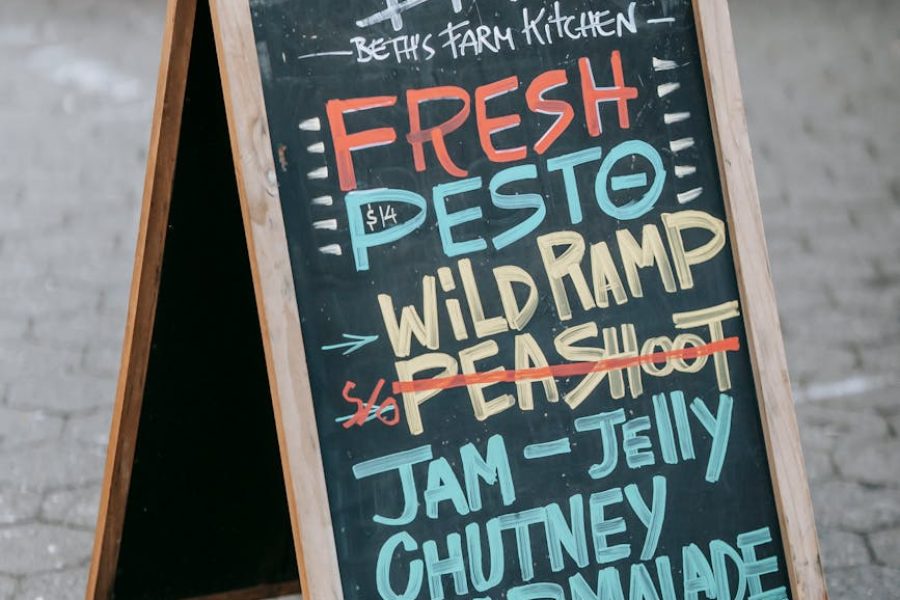 BETH'S FARM KITCHEN
FRESH
PESTO
$14
WILD RAMP
PEA SHOOT
S/O
JAM - JELLY
CHUTNEY
MARMALADE